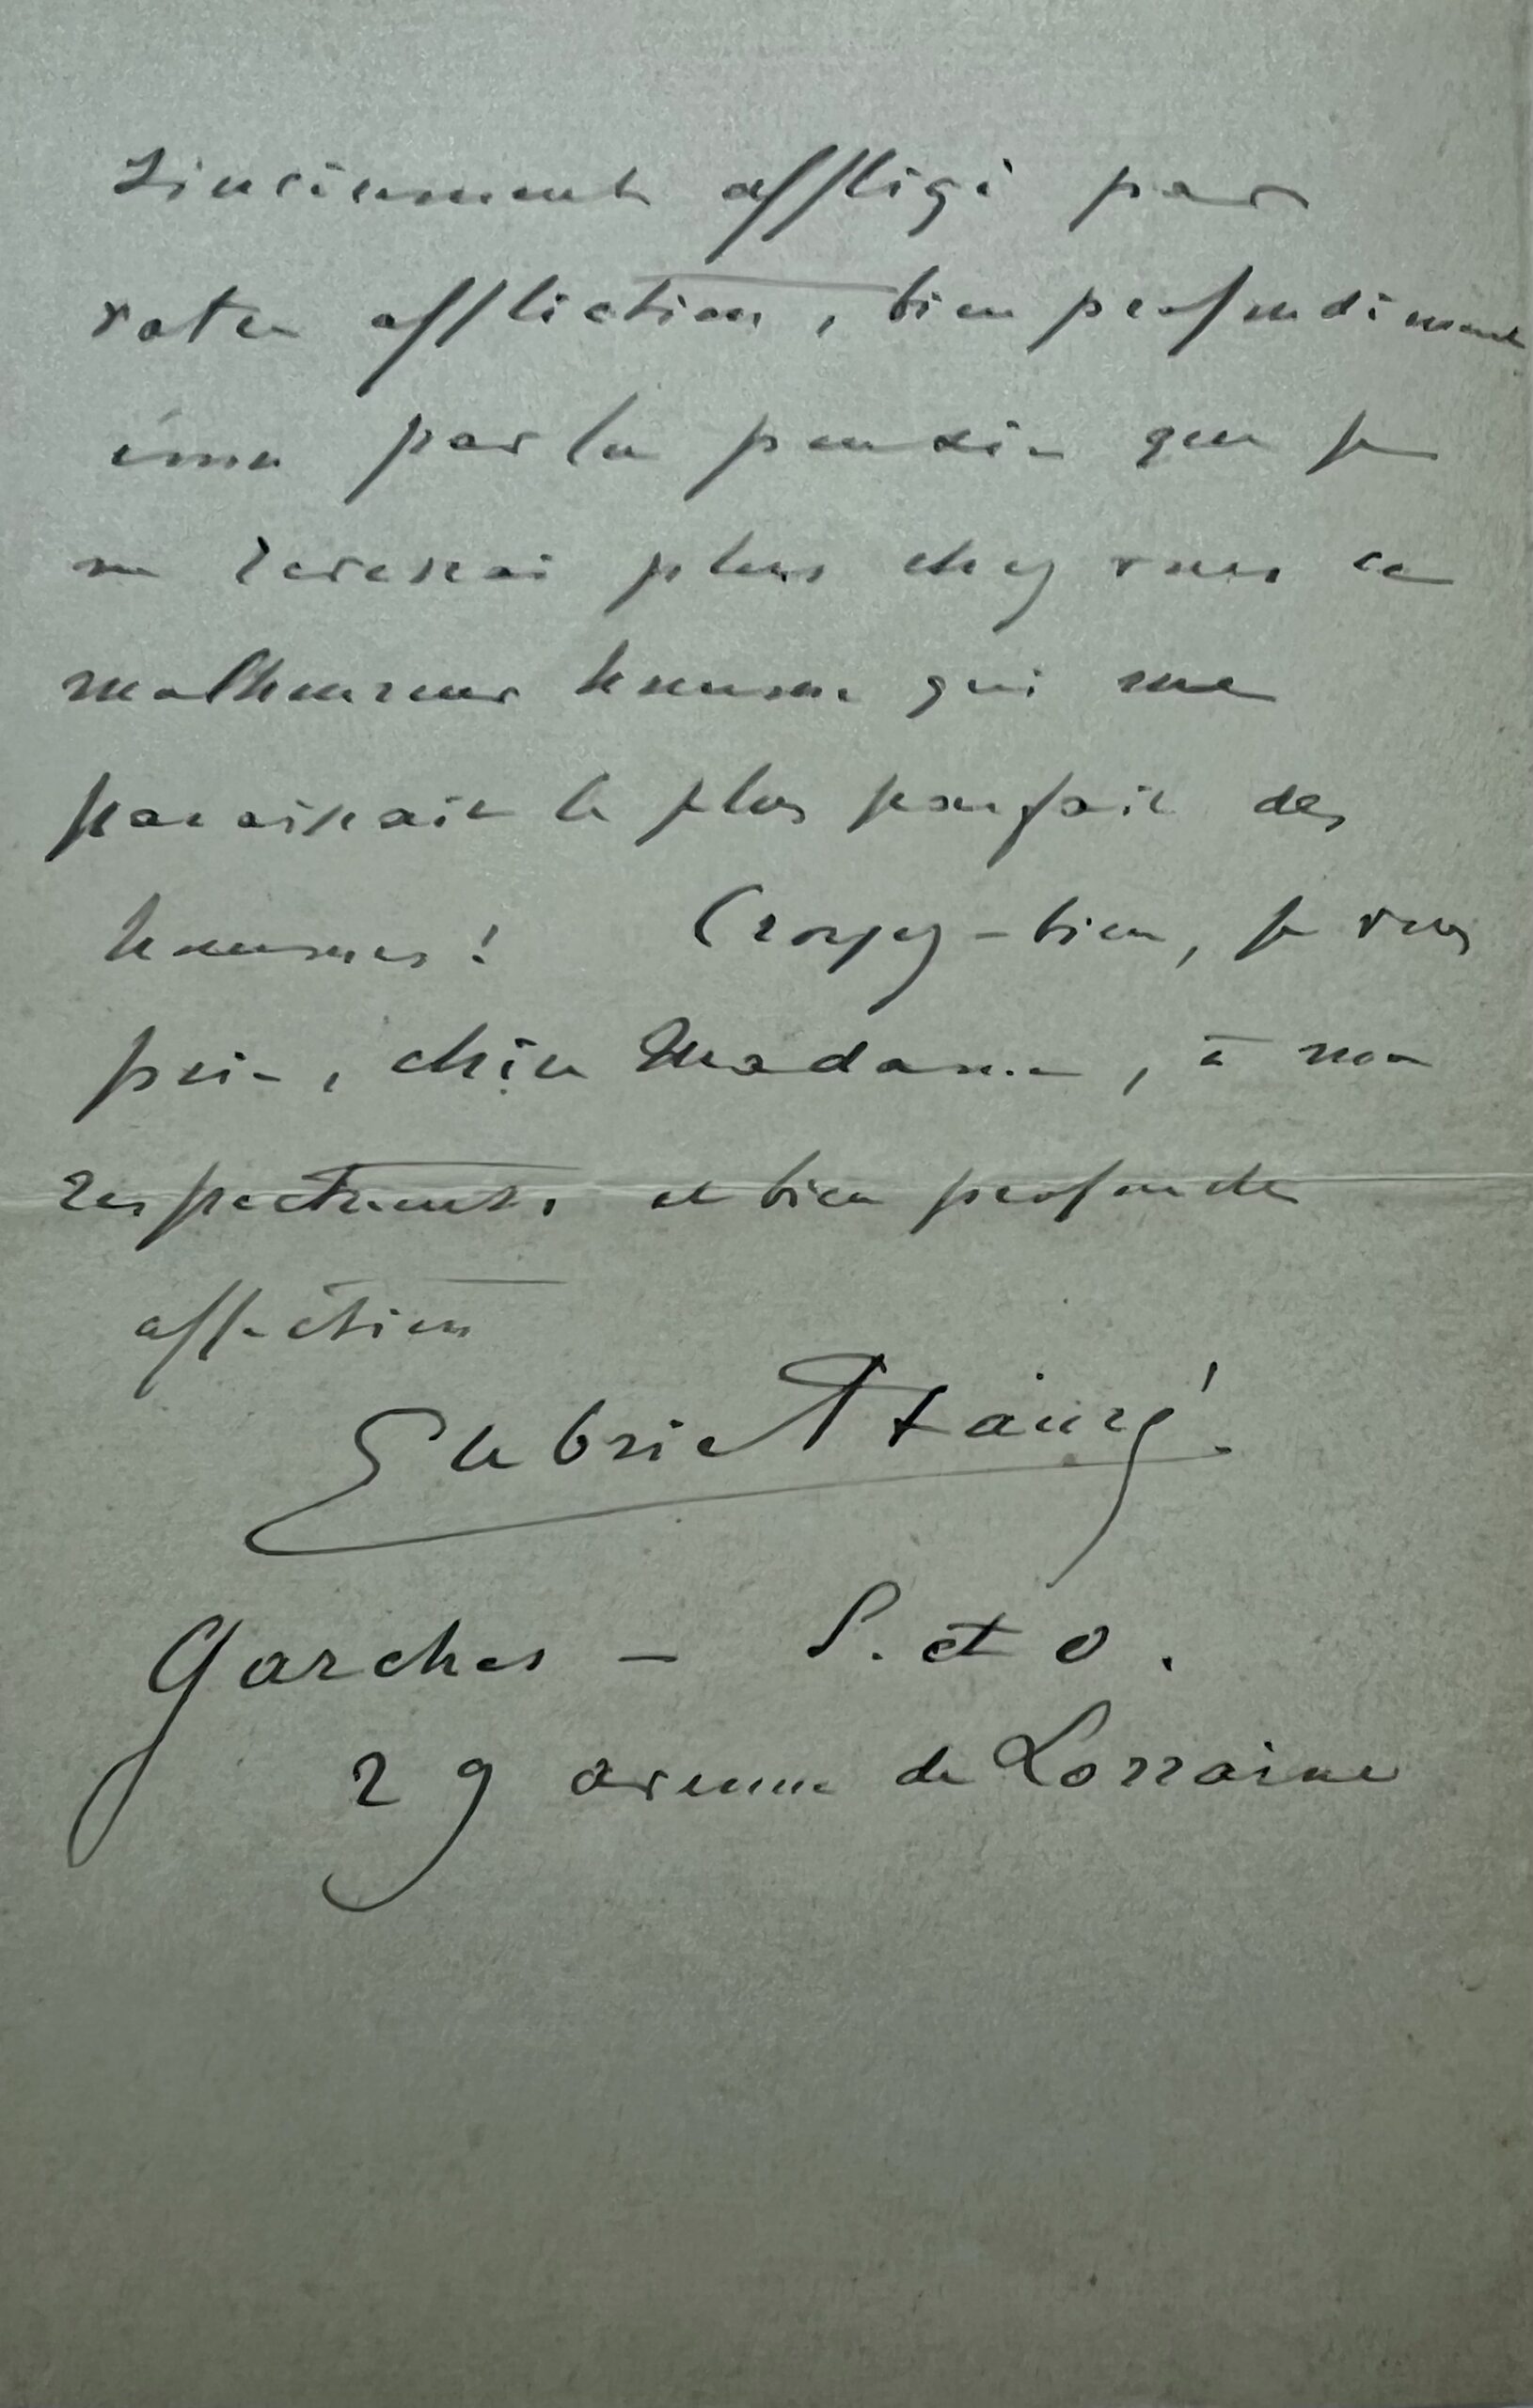 sincèrement affligé par
votre affliction, bien profondément
ému par la pensée que je
ne reverrai plus chez vous ce
malheureux homme qui me
paraissait le plus parfait des
hommes! Croyez-bien, je vous
prie, chère Madame, à ma
respectueuse et bien profonde
affection
Gabriel Fauré
Garches - S. et O.
29 avenue de Lorraine